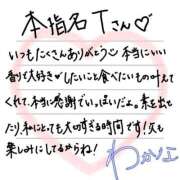 本指名Tさん♡
いつもたくさんありがとう!! 本当にいい
香りで大好き♡したいこと食べたいもの叶えて
くれて、本当に感謝でいっぱいだよ。素を出せ
たり、私にとても大切すぎる時間です!次も
楽しみにしてるからね!
わかな